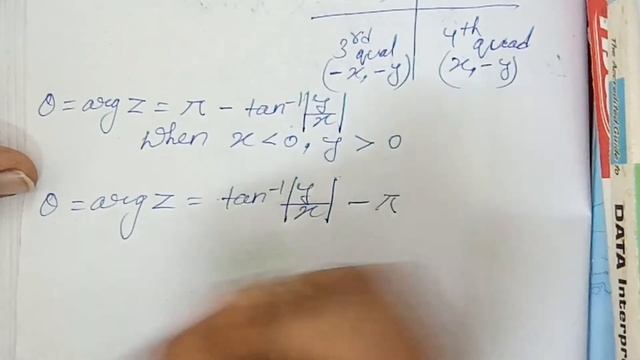 3rd quad 4th quad
(-x, -y) (x, -y)
θ = arg z = π - tan⁻¹|y/x|
when x < 0, y > 0
θ = arg z = tan⁻¹|y/x| - π
DATA Interpr